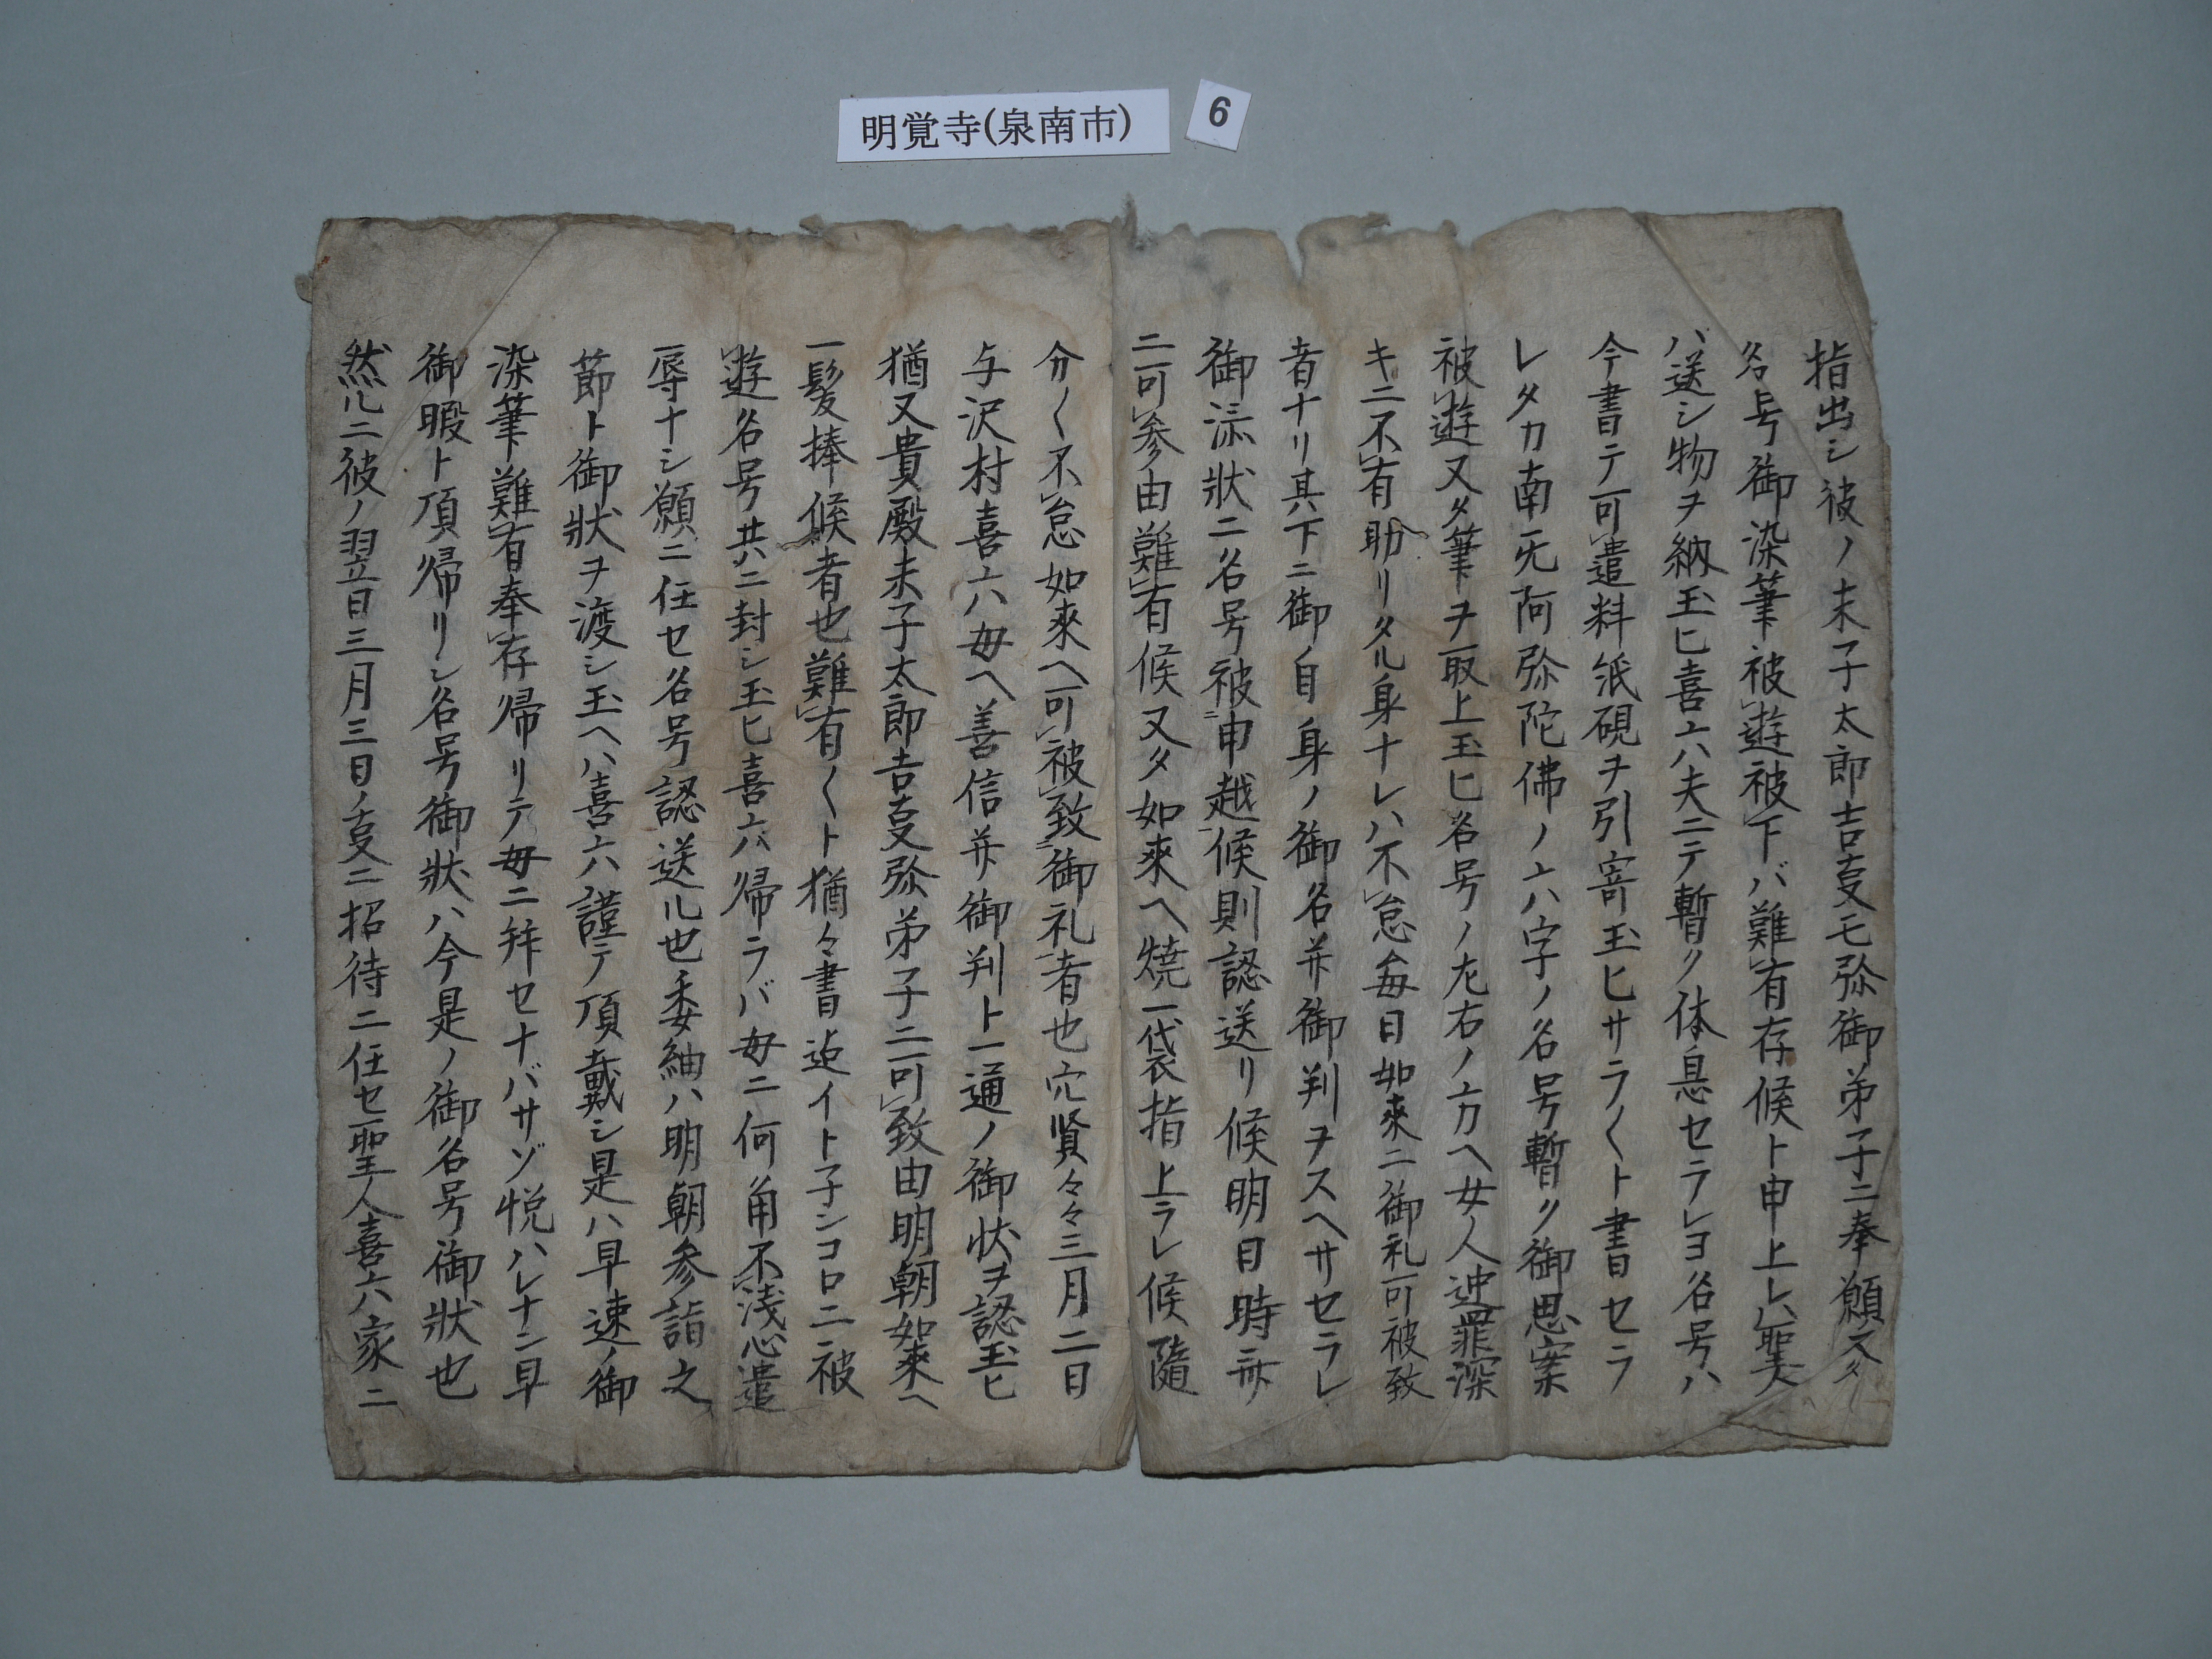 明覚寺(泉南市)
6
指出シ彼ノ末子太郎吉夏モ弥御弟子ニ奉願又タ
名号御染筆被遊被下バ難有存候ト申上レハ聖人
ハ送シ物ヲ納玉ヒ喜六ハ夫ニテ暫ク休息セラレヨ名号ハ
今書テ可遣料紙硯ヲ引寄玉ヒサラ〱ト書セラ
レタカ南无阿弥陀佛ノ六ハ字ノ名号暫ク御思案
被遊又タ筆ヲ取上玉ヒ名号ノ左右ノ方ヘ女人逆罪深
キニ不有助リタル身ナレハ不怠毎日如來ニ御礼可被致
者ナリ其下ニ御自身ノ御名并御判ヲスヘサセラレ
御添狀ニ名号被申越候則認送リ候明日時
ニ可参由難有候又タ如來ヘ焼一袋指上ラレ候隨
分〱不怠如來ヘ可被致御礼者也穴賢々々三月二日
与沢村喜六母ヘ善信并御判ト一通ノ御状ヲ認玉ヒ
猶又貴殿末子太郎吉夏弥弟子ニ可致由明朝如來ヘ
一髪捧候者也難有〱ト猶々書迠イト子ンコロニ被
遊名号共ニ封シ玉ヒ喜六ハ帰ラバ母ニ何角不浅心遣
辱ナシ願ニ任セ名号認送ル也委紬ハ明朝参詣之
節ト御狀ヲ渡シ玉ヘハ喜六謹テ頂戴シ是ハ早速ノ御
染筆難有奉存帰リテ母ニ拜セナバサゾ悦ハレナン早
御暇ト頂帰リシ名号御狀ハ今是ノ御名号御狀也
然ルニ彼ノ翌日三月三日ノ夏ニ招待ニ任セ聖人喜六家ニ